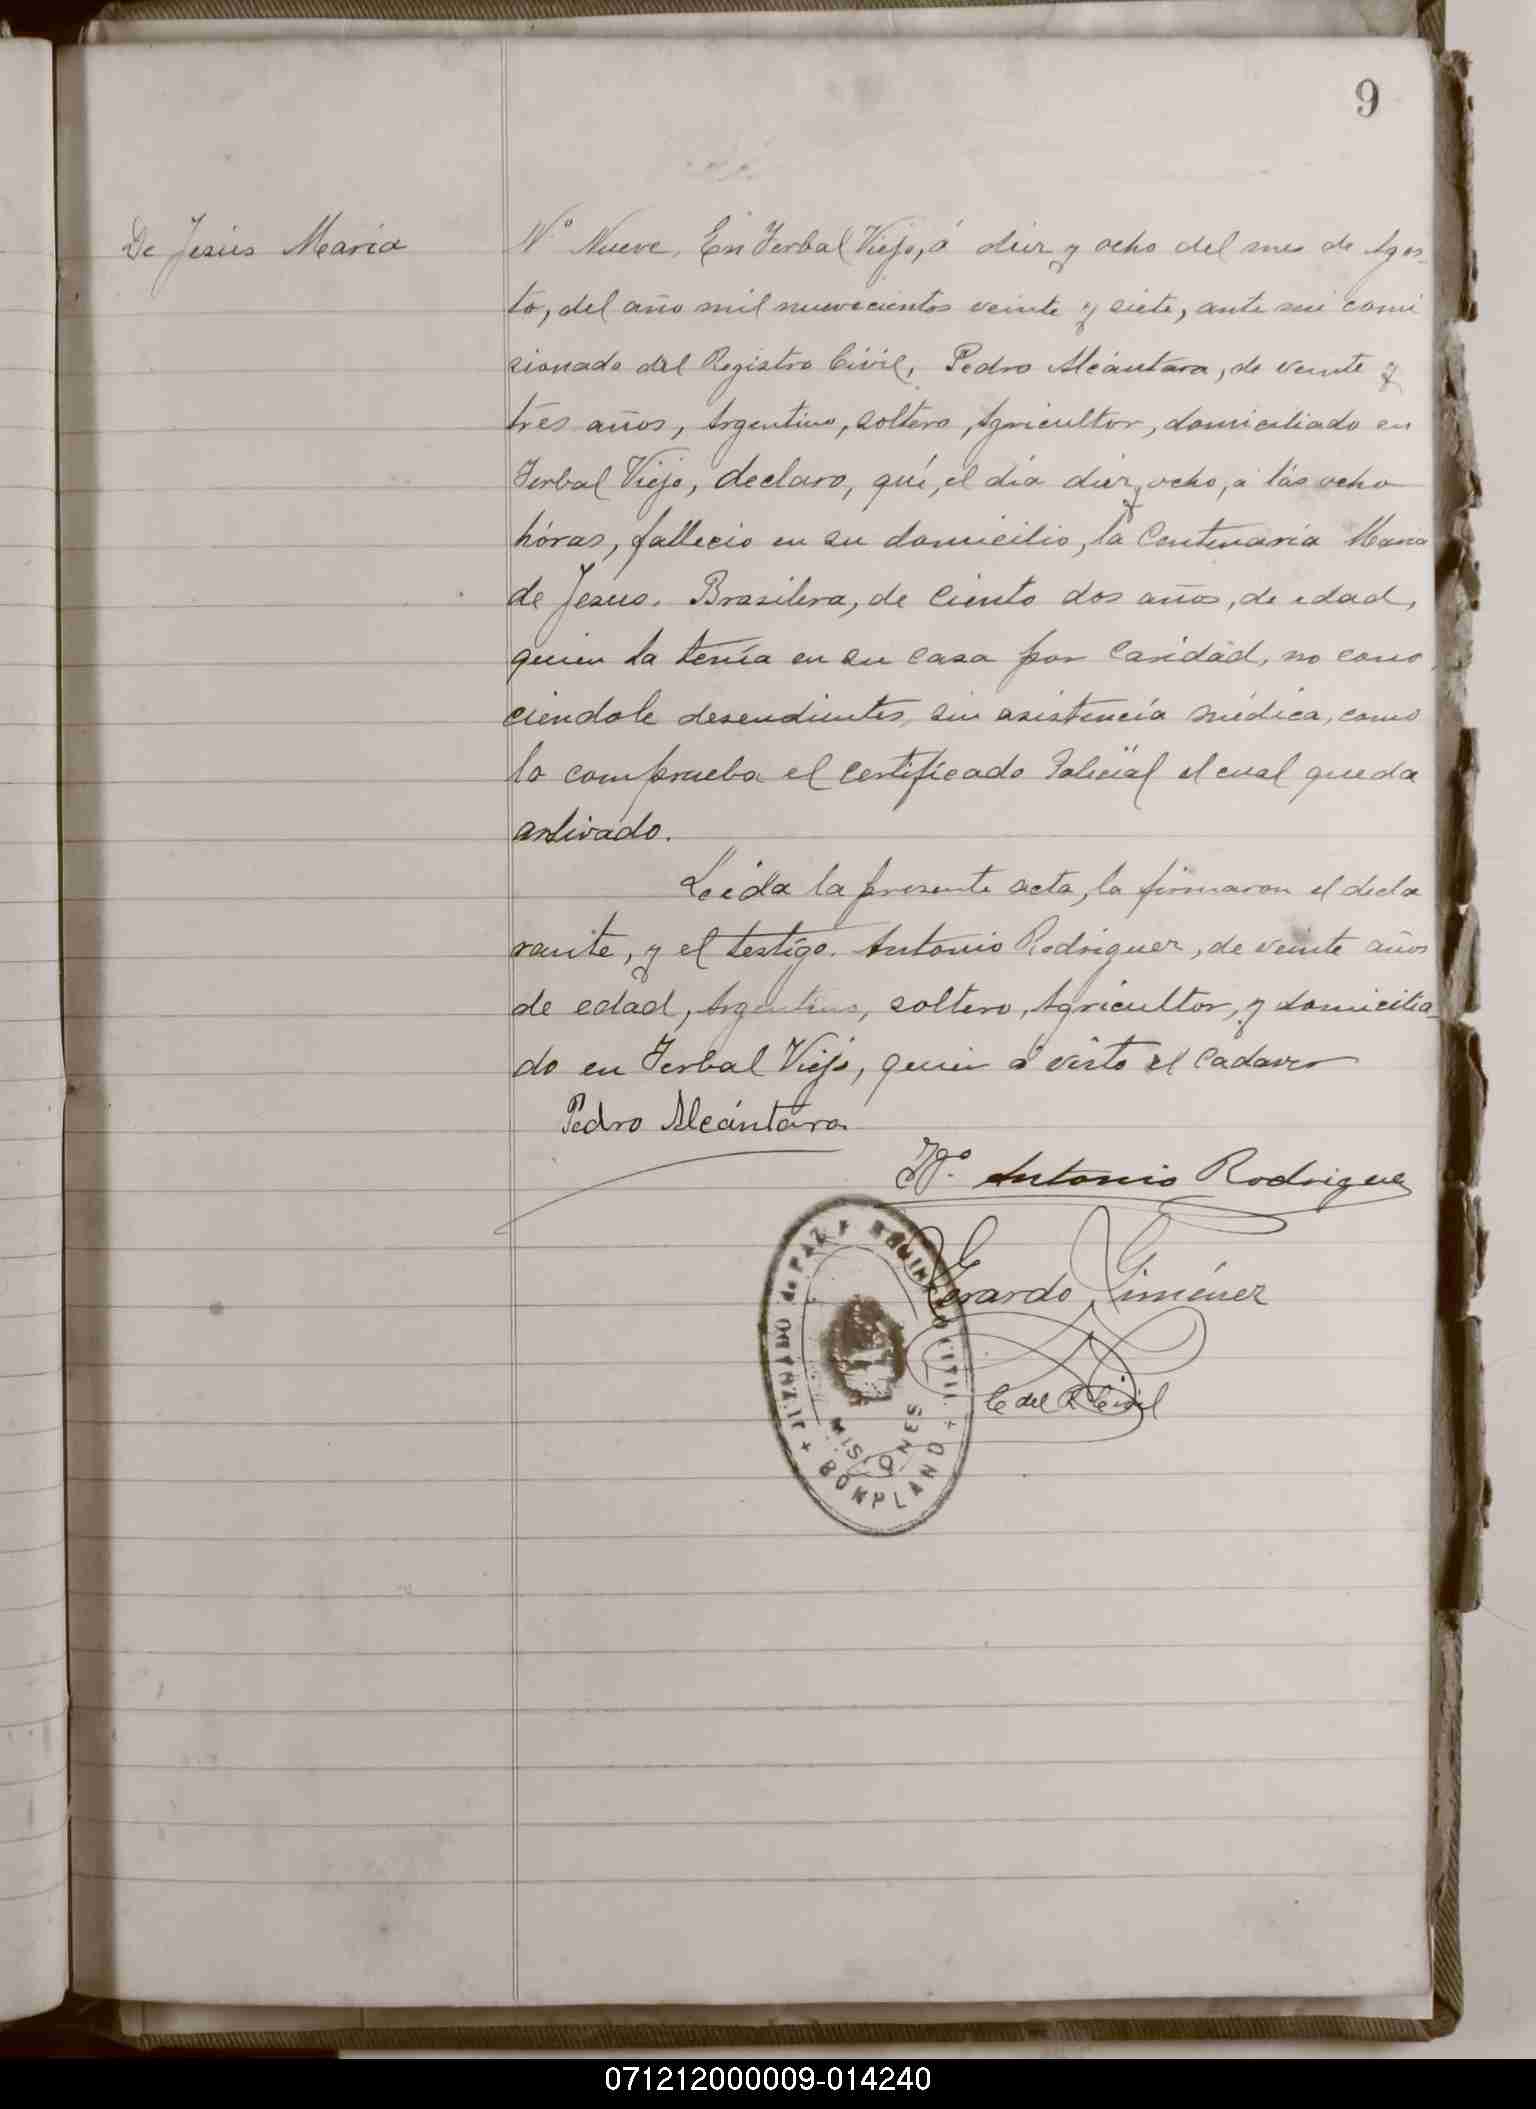 9
De Jesús María
Nº Nueve, En Yerbal Viejo, á diez y ocho del mes de Agos-
to, del año mil nuevecientos veinte y siete, ante mi comi
sionado del Registro Civil, Pedro Alcántara, de veinte y
tres años, Argentino, soltero, Agricultor, domiciliado en
Yerbal Viejo, declaro, qué, el día diez y ocho, a lás ocho
hóras, fallecio en su domicilio, la Centenaria Maria
de Jesus. Brasilera, de Ciento dos años, de edad,
quien la tenía en su casa por Caridad, no cono
ciendole desendientes, sin asistencía médica, como
lo comprueba el certificado Policial el cual queda
archivado.
Leida la presente acta, la firmaron el decla
rante, y el testígo. Antonio Rodriguez, de veinte años
de edad, Argentino, soltero, Agricultor, y domicilia-
do en Yerbal Viejo, quien á visto el Cadaver
Pedro Alcántara
Antonio Rodriguez
Gerardo Giménez
C del R Civil
JUZGADO de PAZ
BONPLAND
MISIONES
071212000009-014240